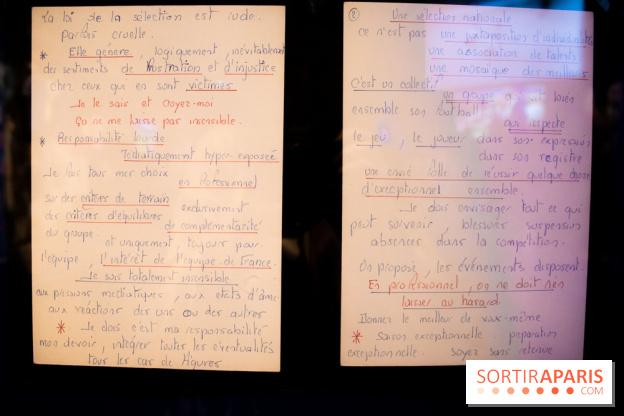 La loi de la sélection est rude.
parfois cruelle.
* Elle génère, logiquement, inévitablement
des sentiments de frustration et d'injustice
chez ceux qui en sont victimes.
Je le sais et croyez-moi
Ça ne me laisse pas insensible.
* Responsabilité lourde
Médiatiquement hyper-exposée
Je fais tous mes choix
en Professionnel
sur des critères de terrain exclusivement
des critères d'équilibres
de complémentarité
du groupe.
et uniquement, toujours pour
l'équipe, l'intérêt de l'équipe de France.
Je suis totalement insensible
aux pressions médiatiques, aux états d'âme
aux réactions des uns ou des autres
* Je dois c'est ma responsabilité
mon devoir, intégrer toutes les éventualités
tous les cas de figures
②
Une sélection nationale
ce n'est pas une juxtaposition d'individualités
une association de talents
une mosaïque des meilleurs
C'est un collectif
un groupe qui vit bien
ensemble son football
qui respecte
le jeu, le joueur dans son expression
dans son registre
une envie folle de réussir quelque chose
d'exceptionnel ensemble.
Je dois envisager tout ce qui
peut survenir, blessures suspension
absences dans la compétition.
On propose, les événements disposent.
En professionnel, on ne doit rien
laisser au hasard
Donnez le meilleur de vous-même
* Saison exceptionnelle. préparation
exceptionnelle. soyez sans retenue
SORTIRAPARIS
.COM